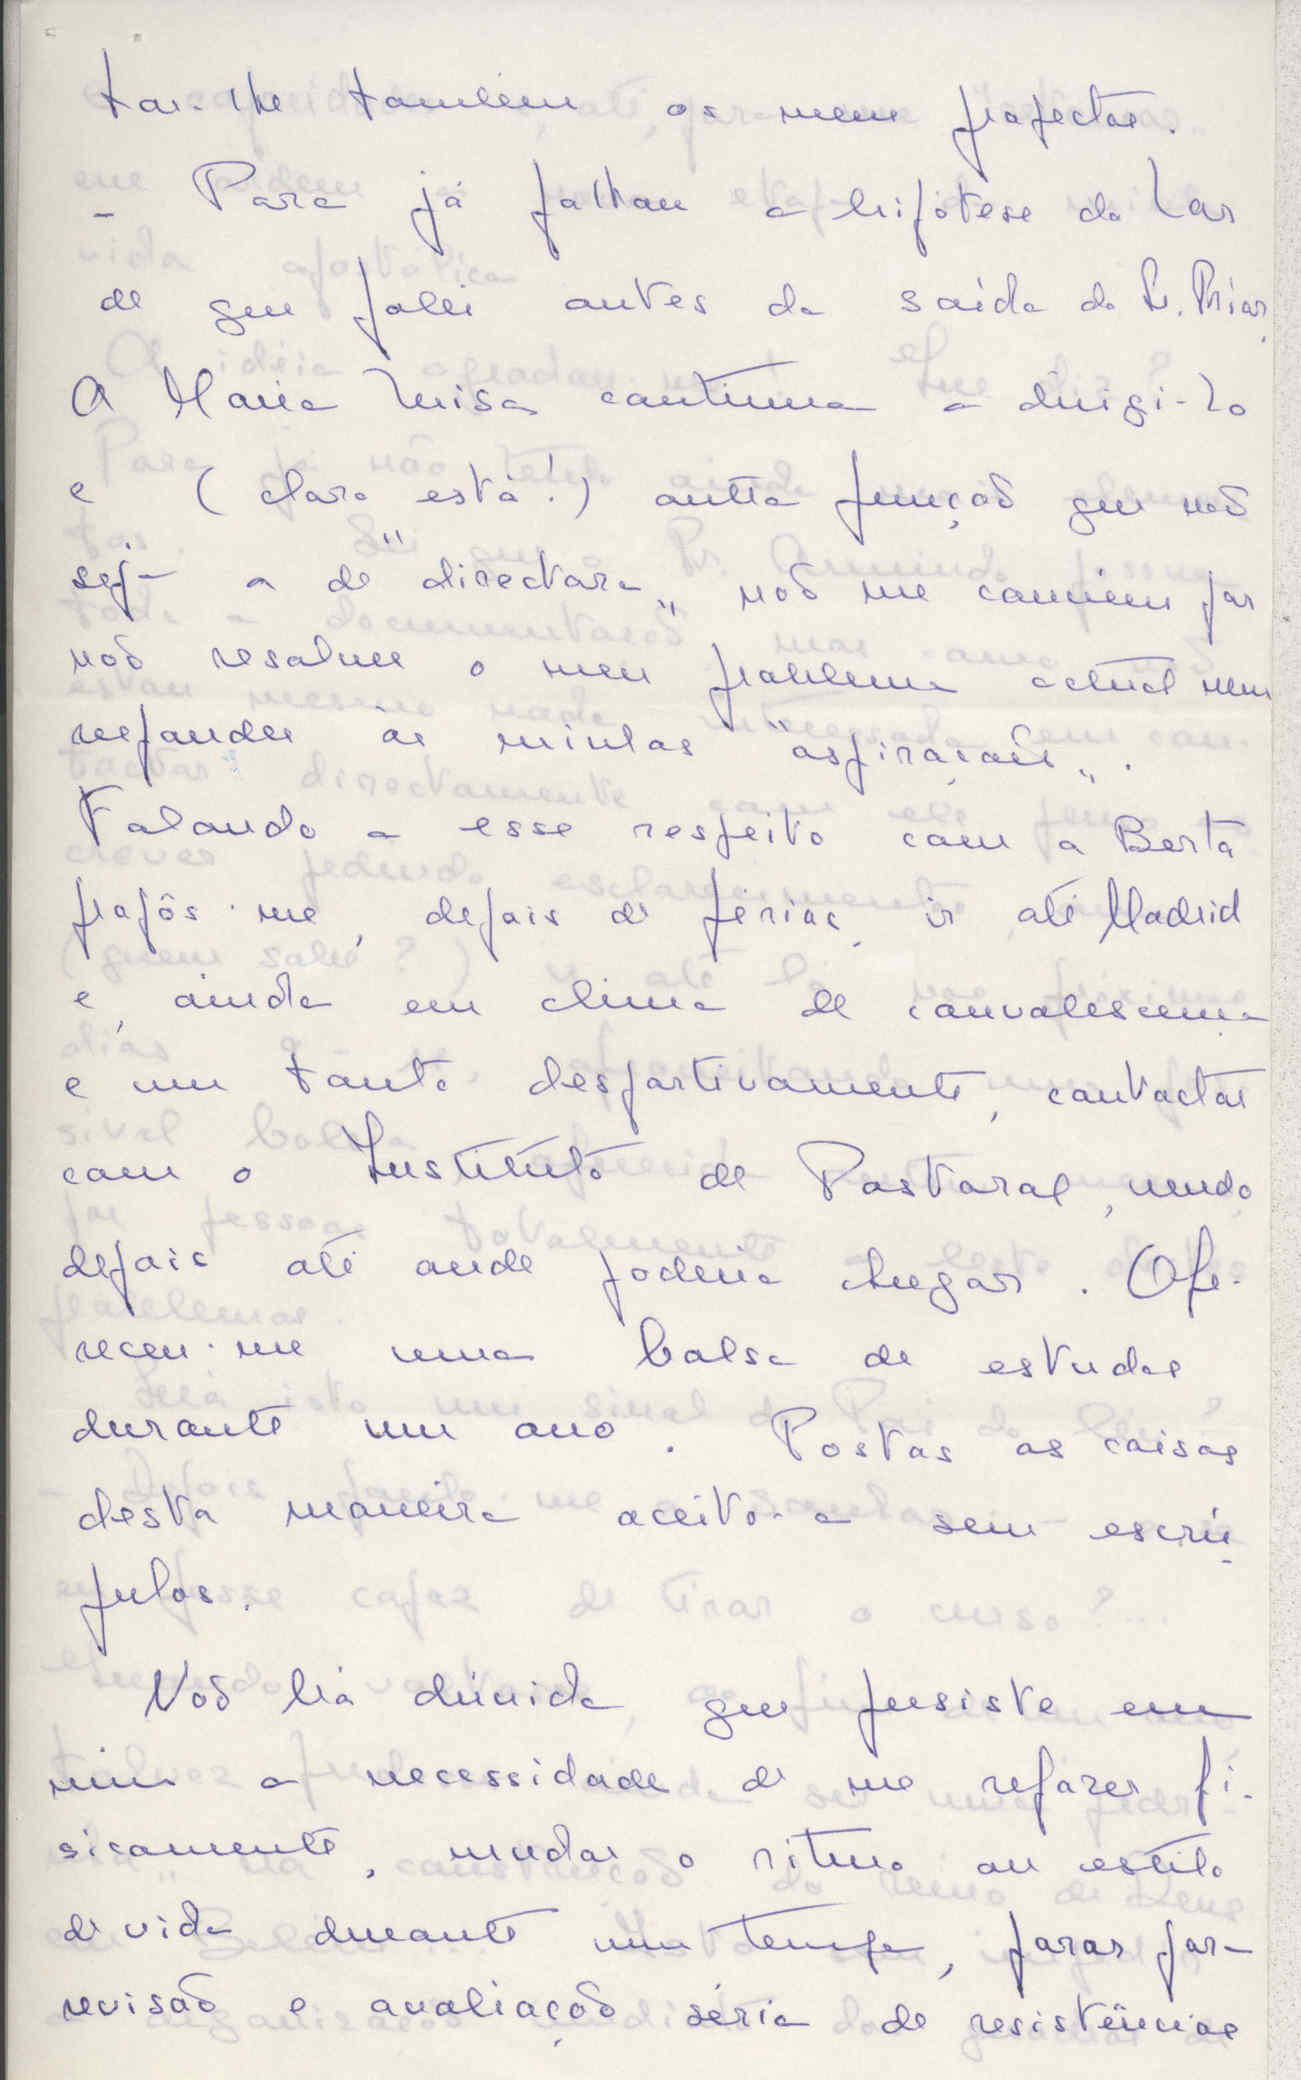 tar-lhe também os meus projectos.
- Para já falhou a hipótese do Lar
de que falei antes da saída do Sr. Prior.
A Maria Luisa continua a dirigi-lo
e (claro está!) outra função que não
seja a de "directora" não me convém por
não resolver o meu problema actual nem
responder às minhas "aspirações".
Falando a esse respeito com a Berta
propôs-me, depois de férias, ir até Madrid
e, ainda em clima de convalescença
e um tanto desportivamente, contactar
com o Instituto de Pastoral, vendo
depois até onde poderia chegar. Ofe-
receu-me uma bolsa de estudos
durante um ano. Postas as coisas
desta maneira aceito-a sem escrú-
pulos.
Não há dúvida que persiste em
mim a necessidade de me refazer fi-
sicamente, mudar o ritmo ou estilo
de vida durante um tempo, parar para
revisão e avaliação séria de resistências